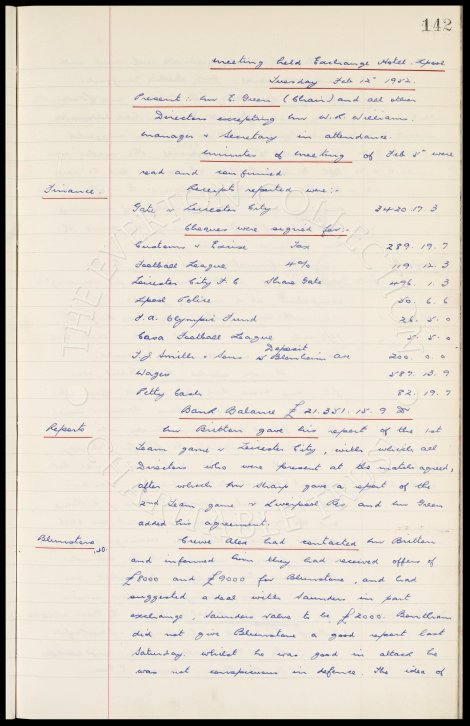 142
Meeting held Exchange Hotel. Lpool
Tuesday Feb 12th 1952.
Present:. Mr E. Green (Chair) and all other
Directors excepting Mr W. R. Williams.
Manager & Secretary in attendance.
Minutes of meeting of Feb 5th were
read and confirmed
Finance:. Receipts reported were:-
Gate v Leicester City 3420. 17. 3
Cheques were signed for:-
Customs & Excise Tax 289. 19. 7
Football League 4% 119. 12. 3
Leicester City F.C Share Gate 496. 1. 3
Lpool Police 50. 6. 6
F.A. Olympic Fund 26. 5. 0
Cava Football League 5. 5. 0
T J Smith & Sons Deposit Blenheim Ave 200. 0. 0
Wages 587. 13. 9
Petty Cash 82. 19. 7
Bank Balance £ 21.351. 15. 9 Dr
Reports Mr Britton gave his report of the 1st
Team game v Leicester City, with which all
Directors who were present at the match agreed,
after which Mr Sharp gave a report of the
2nd Team game v Liverpool Res, and Mr Green
added his agreement.
Blunstone Crewe Alex had contacted Mr Britton
and informed him they had received offers of
£8000 and £9000 for Blunstone, and had
suggested a deal with Saunders in part
exchange, Saunders value to be £2000.
did not give Blunstone a good report last
Saturday. Whilst he was good in attack he
was not conspicuous in defence. The idea of
THE EVERTON COLLECTION
CHARITABLE TRUST